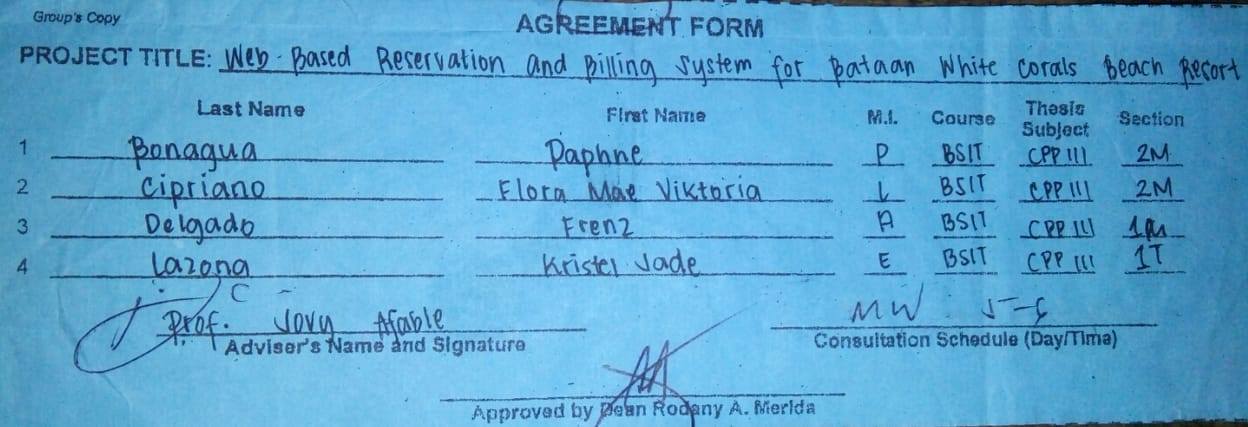 Group's Copy
AGREEMENT FORM
PROJECT TITLE: Web-Based Reservation and Billing System for Bataan White Corals Beach Resort
Last Name First Name M.I. Course Thesis Subject Section
1 Bonagua Daphne P BSIT CPP III 2M
2 Cipriano Flora Mae Viktoria L BSIT CPP III 2M
3 Delgado Frenz A BSIT CPP III 1M
4 Lazona Kristel Jade E BSIT CPP III 1T
Prof. Jovy Afable MW 5-6
Adviser's Name and Signature Consultation Schedule (Day/Time)
Approved by Dean Rodany A. Merida